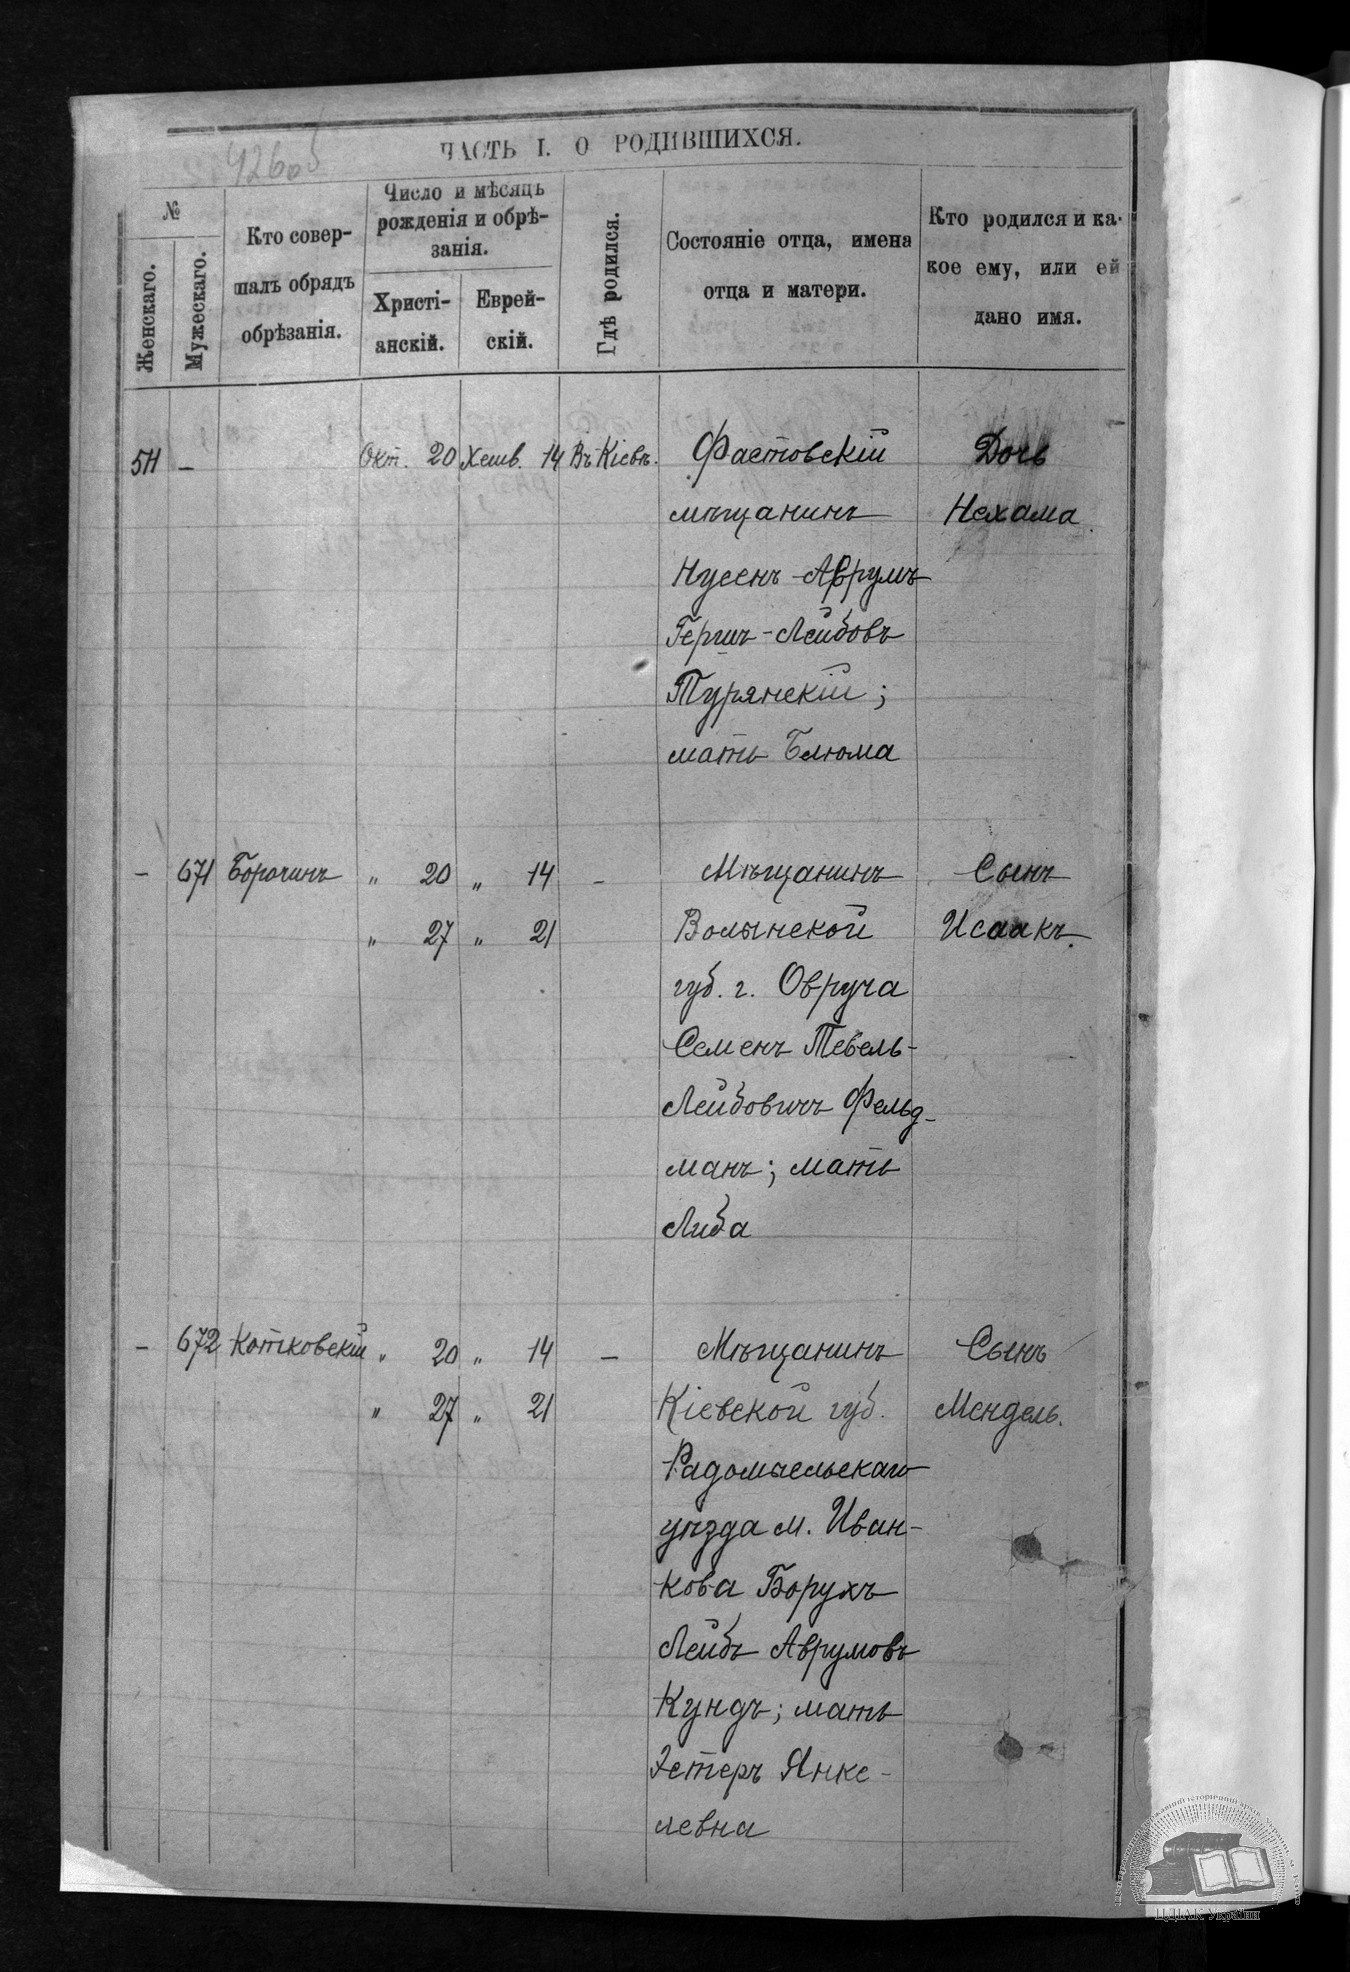 426 об
ЧАСТЬ I. О РОДИВШИХСЯ.
№
Женскаго.
Мужескаго.
Кто совер-
шалъ обрядъ
обрѣзанія.
Число и мѣсяцъ
рожденія и обрѣ-
занія.
Христі-
анскій.
Еврей-
скій.
Гдѣ родился.
Состояніе отца, имена
отца и матери.
Кто родился и ка-
кое ему, или ей
дано имя.
511 — Окт. 20 Хешв. 14 Въ Кіевѣ. Фастовскій Дочь
мѣщанинъ Нехама.
Нусенъ-Аврумъ
Гершъ-Лейбовъ
Турянскій;
мать Блюма
— 671 Борочинъ „ 20 „ 14 — Мѣщанинъ Сынъ
„ 27 „ 21 Волынской Исаакъ.
губ. г. Овруча
Семенъ Тевель-
Лейбовичъ Фельд-
манъ; мать
Либа
— 672 Котковскій „ 20 „ 14 — Мѣщанинъ Сынъ
„ 27 „ 21 Кіевской губ. Мендель.
Радомысльскаго
уѣзда м. Иван-
кова Борухъ
Лейбъ Аврумовъ
Кундъ; мать
Эстеръ Янке-
левна
ЦДІАК України